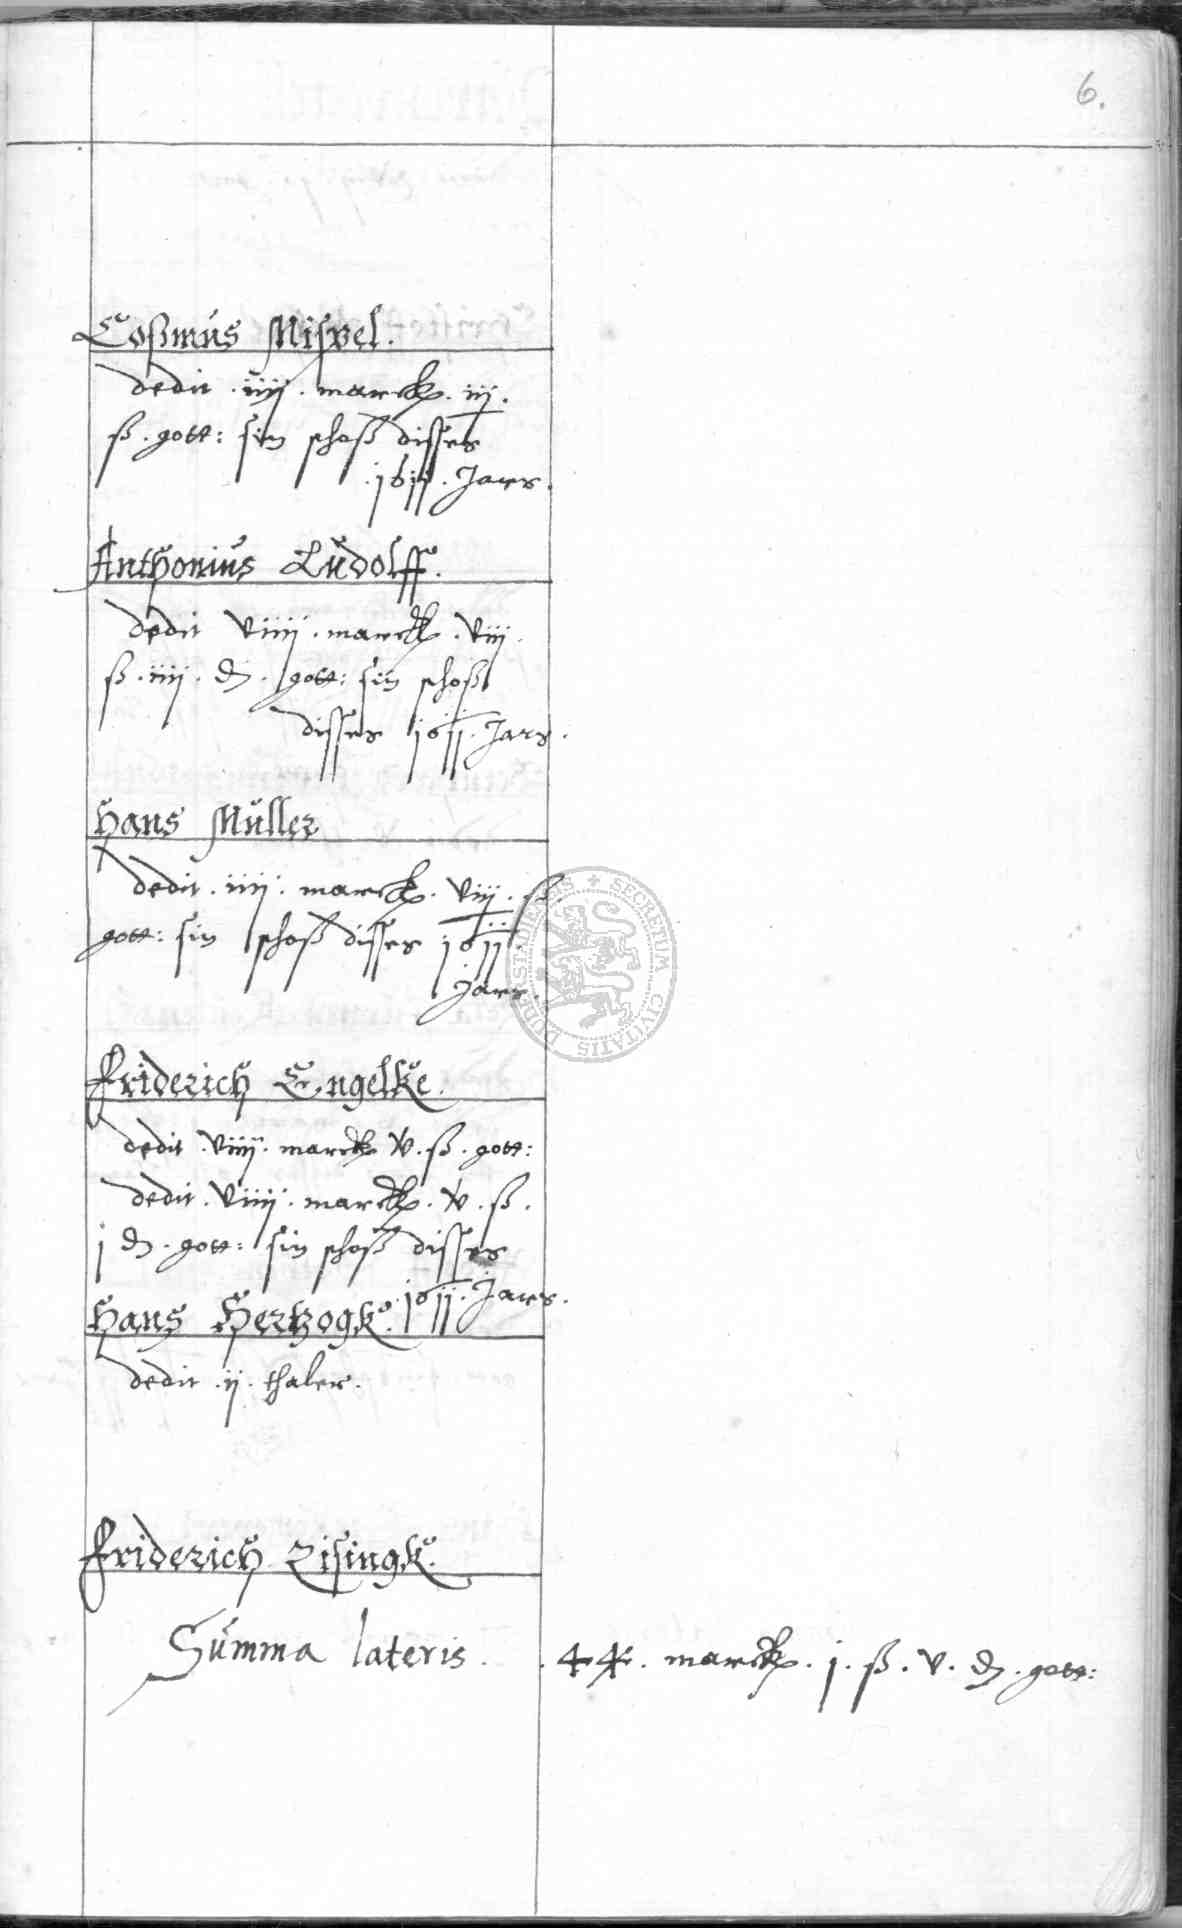 6.
Coßmus Mispel.
dedit .iiij. marck. iij.
ß. gott: sin schoß disses
.1611. Jars.
Anthonius Ludolff.
dedit viiij. marck. viij.
ß. iiij. d. gott: sin schoß
disses 1611. Jars.
Hans Müller
dedit. iiij. marck. viij. ß.
gott: sin schoß disses 1611.
Jars.
Friderich Engelke.
dedit .viiij. marck v. ß. gott:
dedit. viiij. marck. v. ß.
j d. gott: sin schoß disses
.1611. Jars.
Hans Hertzogk.
dedit .ij. thaler.
Friderich Zisingk.
Summa lateris. .44. marck. j. ß. v. d. gott:
SECRETUM CIVITATIS DUDERSTADIENSIS